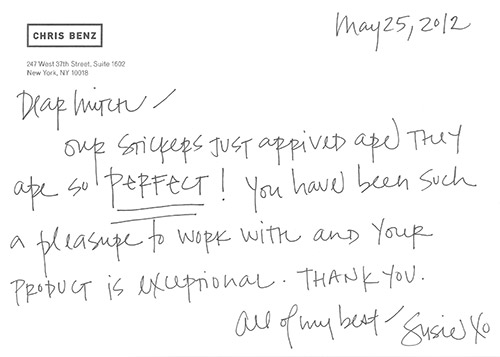 CHRIS BENZ
May 25, 2012
247 West 37th Street, Suite 1602
New York, NY 10018
Dear Mitch /
our stickers just arrived and they
are so PERFECT! You have been such
a pleasure to work with and your
PRODUCT is exceptional. THANK YOU.
All of my best / Susie XO